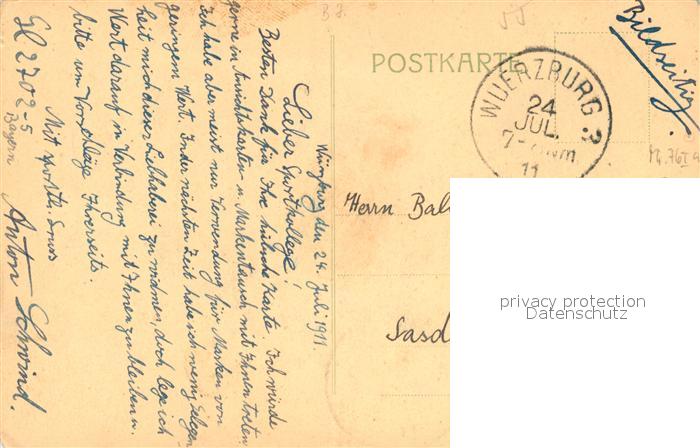 Würzburg den 24. Juli 1911.
Lieber Sportkollege!
Besten Dank für Ihre hübsche Karte. Ich würde
gerne in Ansichtskarten u. Markentausch mit Ihnen treten.
Ich habe aber meist nur Verwendung für Marken von
geringem Wert. In der nächsten Zeit habe ich wenig Gelegen
heit mich dieser Liebhaberei zu widmen, doch lege ich
Wert darauf in Verbindung mit Ihnen zu bleiben u.
bitte um Vorschläge Ihrerseits.
Mit sportl. Gruss
Anton Schwind.
Gl 2702-5
Bayern
POSTKARTE
WUERZBURG 2
24
JUL.
11
Bildseitig.
Herrn Bal
Sasd
privacy protection
Datenschutz